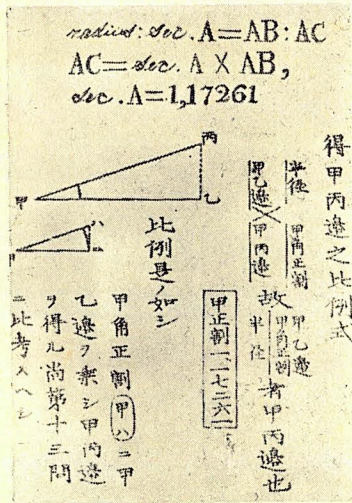 radius: sec. A=AB: AC
AC= sec. A X AB,
sec. A=1,17261
得甲丙邊之比例式
半径 甲角正割
甲乙邊 甲丙邊
故 甲乙邊 甲角正割 半径 者甲丙邊也
甲正割一一七二六一
丙
甲
乙
比例是ノ如シ
甲角正割甲ハニ甲
乙邊ヲ乘シ甲丙邊
ヲ得ル尚第十三問
ニ比考スヘシ